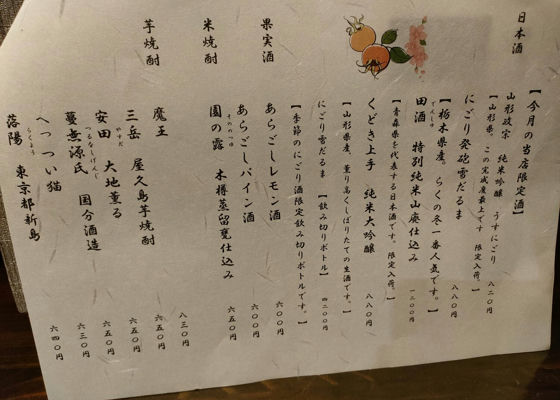 日本酒
【今月の当店限定酒】
山形政宗 純米吟醸 うすにごり 八二〇円
【山形県。この完成度最上です 限定入荷。】
にごり発砲雪だるま 八八〇円
【栃木県産。らくの冬一番人気です。】
田酒 特別純米山廃仕込み 一二〇〇円
でんしゅ
【青森県を代表する日本酒です。限定入荷。】
くどき上手 純米大吟醸 八八〇円
【山形県産。薫り高くしぼりたての生酒です。】
にごり雪だるま 【飲み切りボトル】 四二〇〇円
【季節のにごり酒限定飲み切りボトルです。】
果実酒
あらごしレモン酒 六〇〇円
あらごしパイン酒 六〇〇円
米焼酎
園の露 木樽蒸留甕仕込み 六五〇円
そののつゆ
芋焼酎
魔王 八三〇円
三岳 屋久島芋焼酎 六五〇円
安田 大地薫る 六五〇円
やすだ
蔓無源氏 国分酒造 六三〇円
つるなしげんじ
へっつい猫 六四〇円
落陽 東京都新島
らくよう